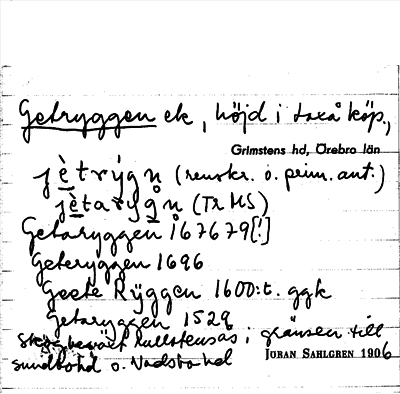 Getryggen ek, höjd i Laxå köp.,
Grimstens hd, Örebro län
jètrýgn (renskr. o. prim. ant.)
jètarýgn (TR MS)
Getaryggen 167679[!]
Geteryggen 1696
Geete Ryggen 1600:t. ggk
Getaryggen 1529
i gränsen till
sundbohd o. Vadsbohd
JÖRAN SAHLGREN 1906